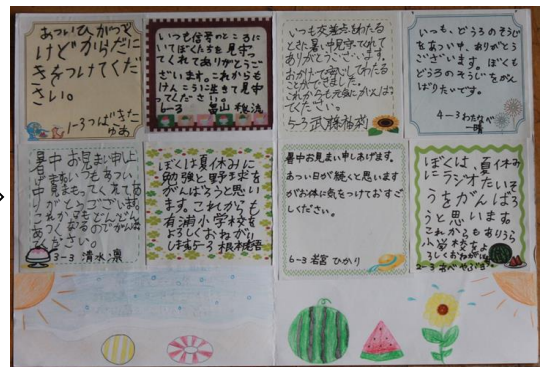 あついひがつづく
けどからだに
きをつけてくだ
さい。
1-3つばきた
ゆあ
いつも信号のところに
いてぼくたちを見守っ
てくれてありがとうござ
います。これからも
けんこうに生きて見守
ってださい。
6-3 畠山
いつも交差点をわたる
ときに暑い中見守ってくれて
ありがとうございます。
おかげで安心してわたる
ことができました。
これからも元気にがんばっ
てください。
5-3 武藤
いつも、どうろのそうじ
をあつい中、ありがとう
ございます。ぼくも
どうろのそうじをがん
ばりたいです。
4-3わたなべ
一晴
暑中お見まい申し上
げます。
中見まもってくれてあ
りがとうございます。
ください。
3-3 清水凛
ぼくは夏休みに
勉強と野球を
がんばろうと思い
ます。これからも
有浦小学校を
よろしくおねがい
します5-3 根本
暑中お見まい申しあげます。
あつい日が続くと思います
がお体に気をつけておすご
しください。
6-3 若宮 ひかり
ぼくは、夏休み
にラジオたいそ
うをがんばろ
うと思います
これからもありうら
小学校をよ
ろしくおねがい
2-3